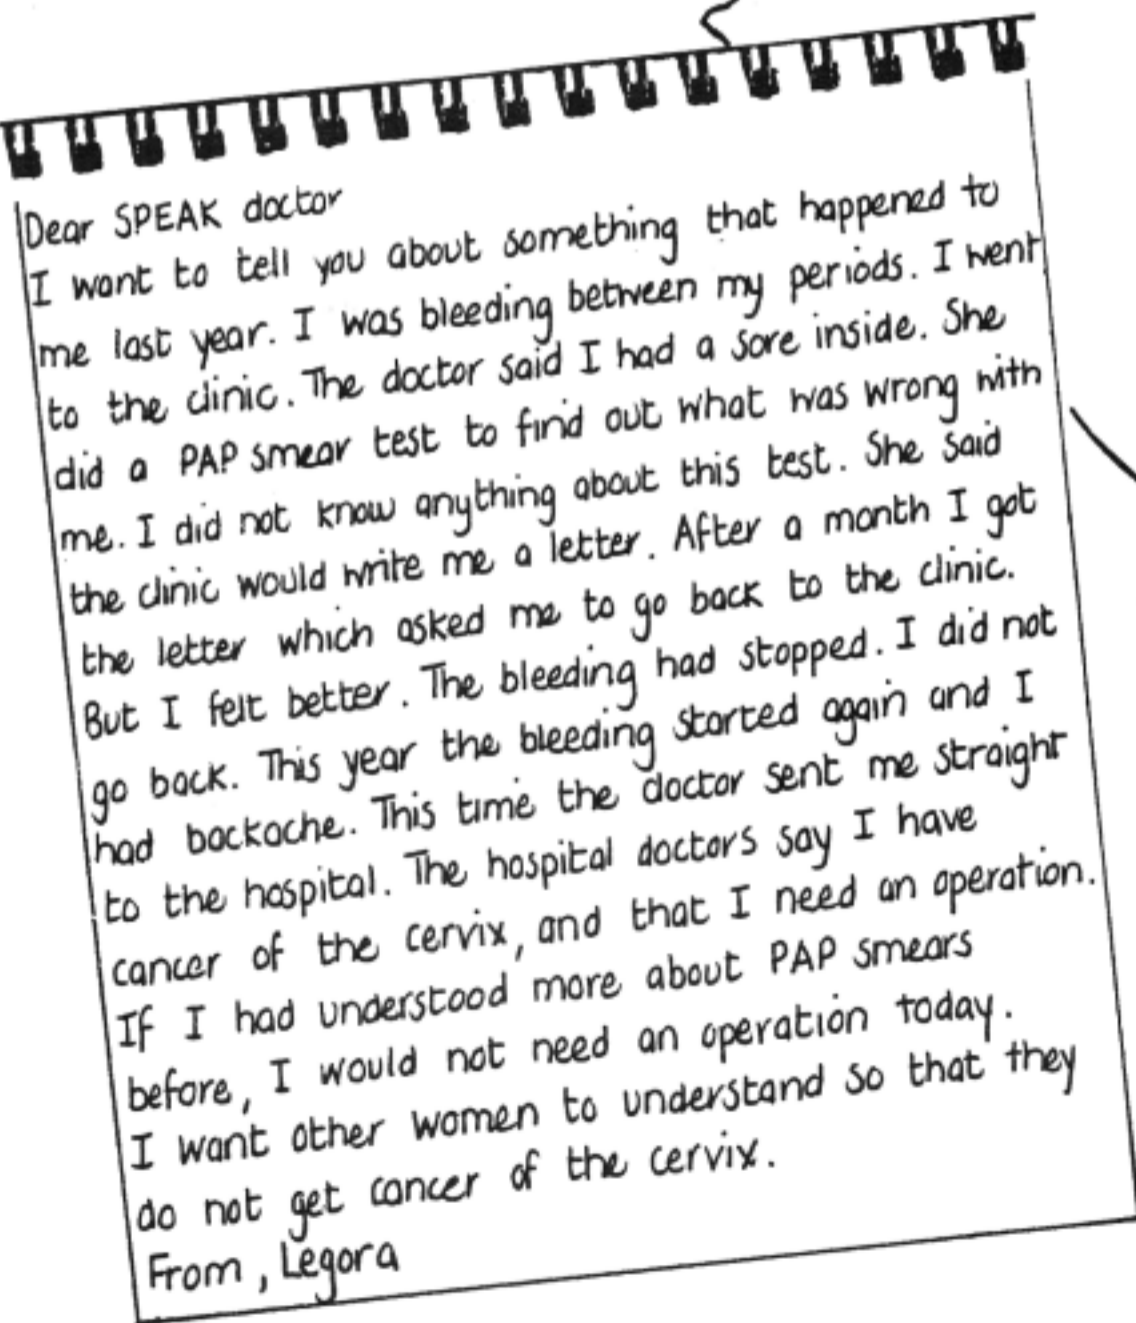 Dear SPEAK doctor
I want to tell you about something that happened to
me last year. I was bleeding between my periods. I went
to the clinic. The doctor said I had a sore inside. She
did a PAP smear test to find out what was wrong with
me. I did not know anything about this test. She said
the clinic would write me a letter. After a month I got
the letter which asked me to go back to the clinic.
But I felt better. The bleeding had stopped. I did not
go back. This year the bleeding started again and I
had backache. This time the doctor sent me straight
to the hospital. The hospital doctors say I have
cancer of the cervix, and that I need an operation.
If I had understood more about PAP smears
before, I would not need an operation today.
I want other women to understand so that they
do not get cancer of the cervix.
From, Legora